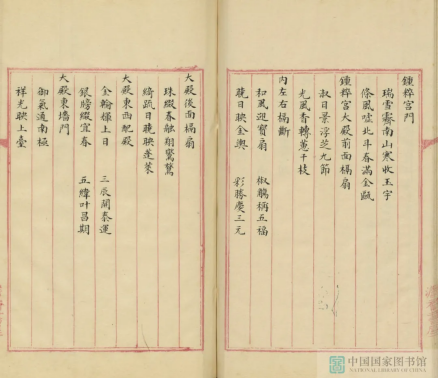 鍾粹宮門
瑞雪霽南山寒收玉宇
條風噓北斗春滿金甌
鍾粹宮大殿前面槅扇
淑日景浮芝九節
光風香轉蕙千枝
內左右槅斷
和風迎寶扇 椒觴稱五福
麗日映金輿 彩勝慶三元
大殿後面槅扇
珠綴春融翔鸑鷟
綺疏日曉映蓬萊
大殿東西配殿
金輪綵上日 三辰開泰運
銀牓綴宜春 五緯叶昌期
大殿東墻門
御氣通南極
祥光映上臺
中国国家图书馆
NATIONAL LIBRARY OF CHINA